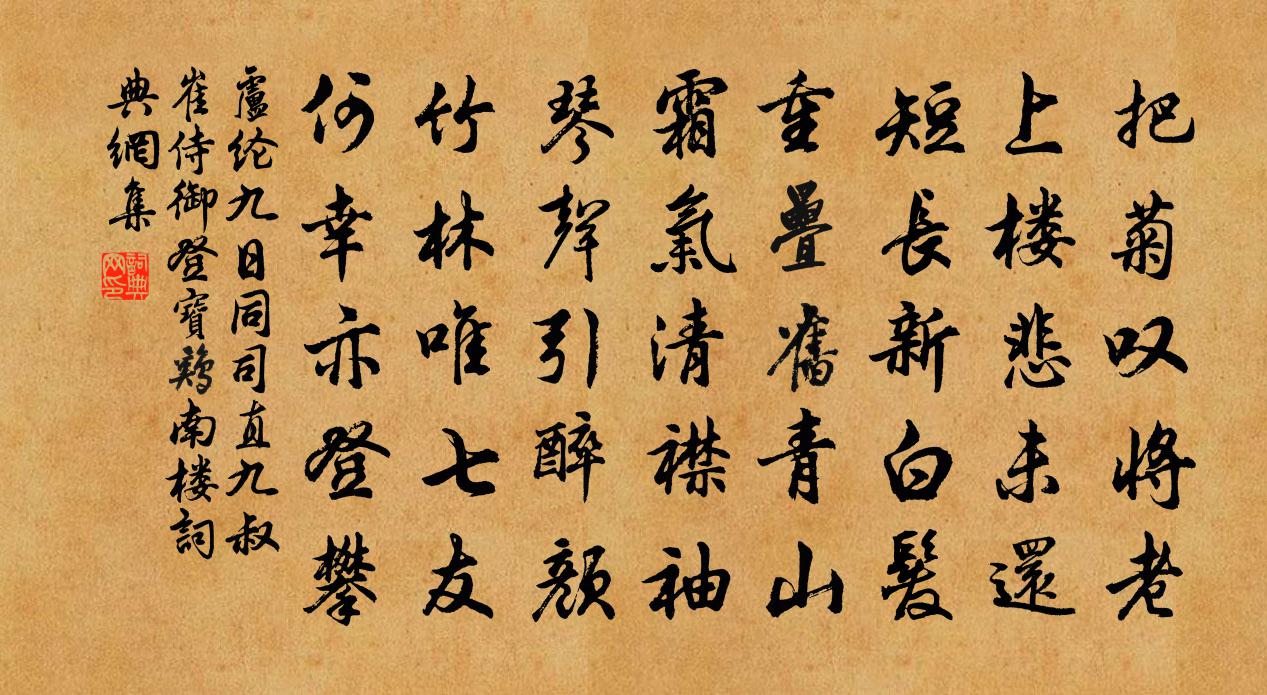 把菊叹将老
上楼悲未還
短長新白髮
重疊舊青山
霜氣清襟袖
琴聲引醉顔
竹林唯七友
何幸亦登攀
盧纶九日同司直九叔
崔侍御登寶鷄南楼詞
典網集
詞典网印